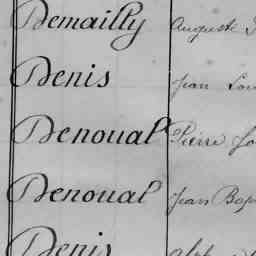 Demailly Auguste
Denis Jean Lou
Denoual Pierre Jo
Denoual Jean Bap
Denis